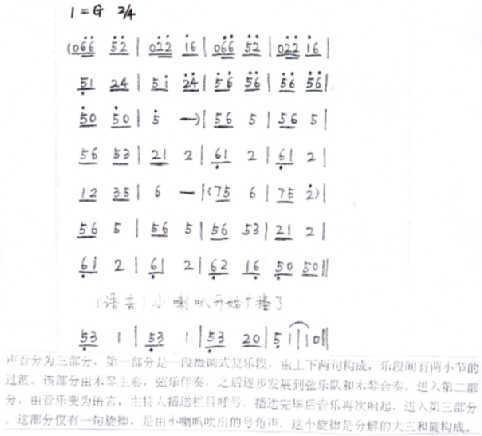 1=G 2/4
(066 52 | 022 16 | 066 52 | 022 16 |
51 24 | 51 24 | 56 56 | 56 56 |
50 50 | 5 —) | 56 5 | 56 5 |
56 53 | 21 2 | 61 2 | 61 2 |
12 35 | 6 — | (75 6 | 75 2) |
56 5 | 56 5 | 56 53 | 21 2 |
61 2 | 61 2 | 62 16 | 50 50 ||
(语言)小喇叭开始广播了
53 1 | 53 1 | 53 20 | 51 | 10 ||
声音分为三部分,第一部分是一段微调式复乐段,由上下两句构成,乐段间有两小节的
过渡。该部分由木琴主奏,弦乐伴奏,之后逐步发展到弦乐队和木琴合奏。进入第二部
分,由音乐变为语言,主持人播送栏目呼号。播送完毕后音乐再次响起,进入第三部分
。这部分仅有一句旋律,是由小喇叭吹出的号角声。这个旋律是分解的大三和弦构成。